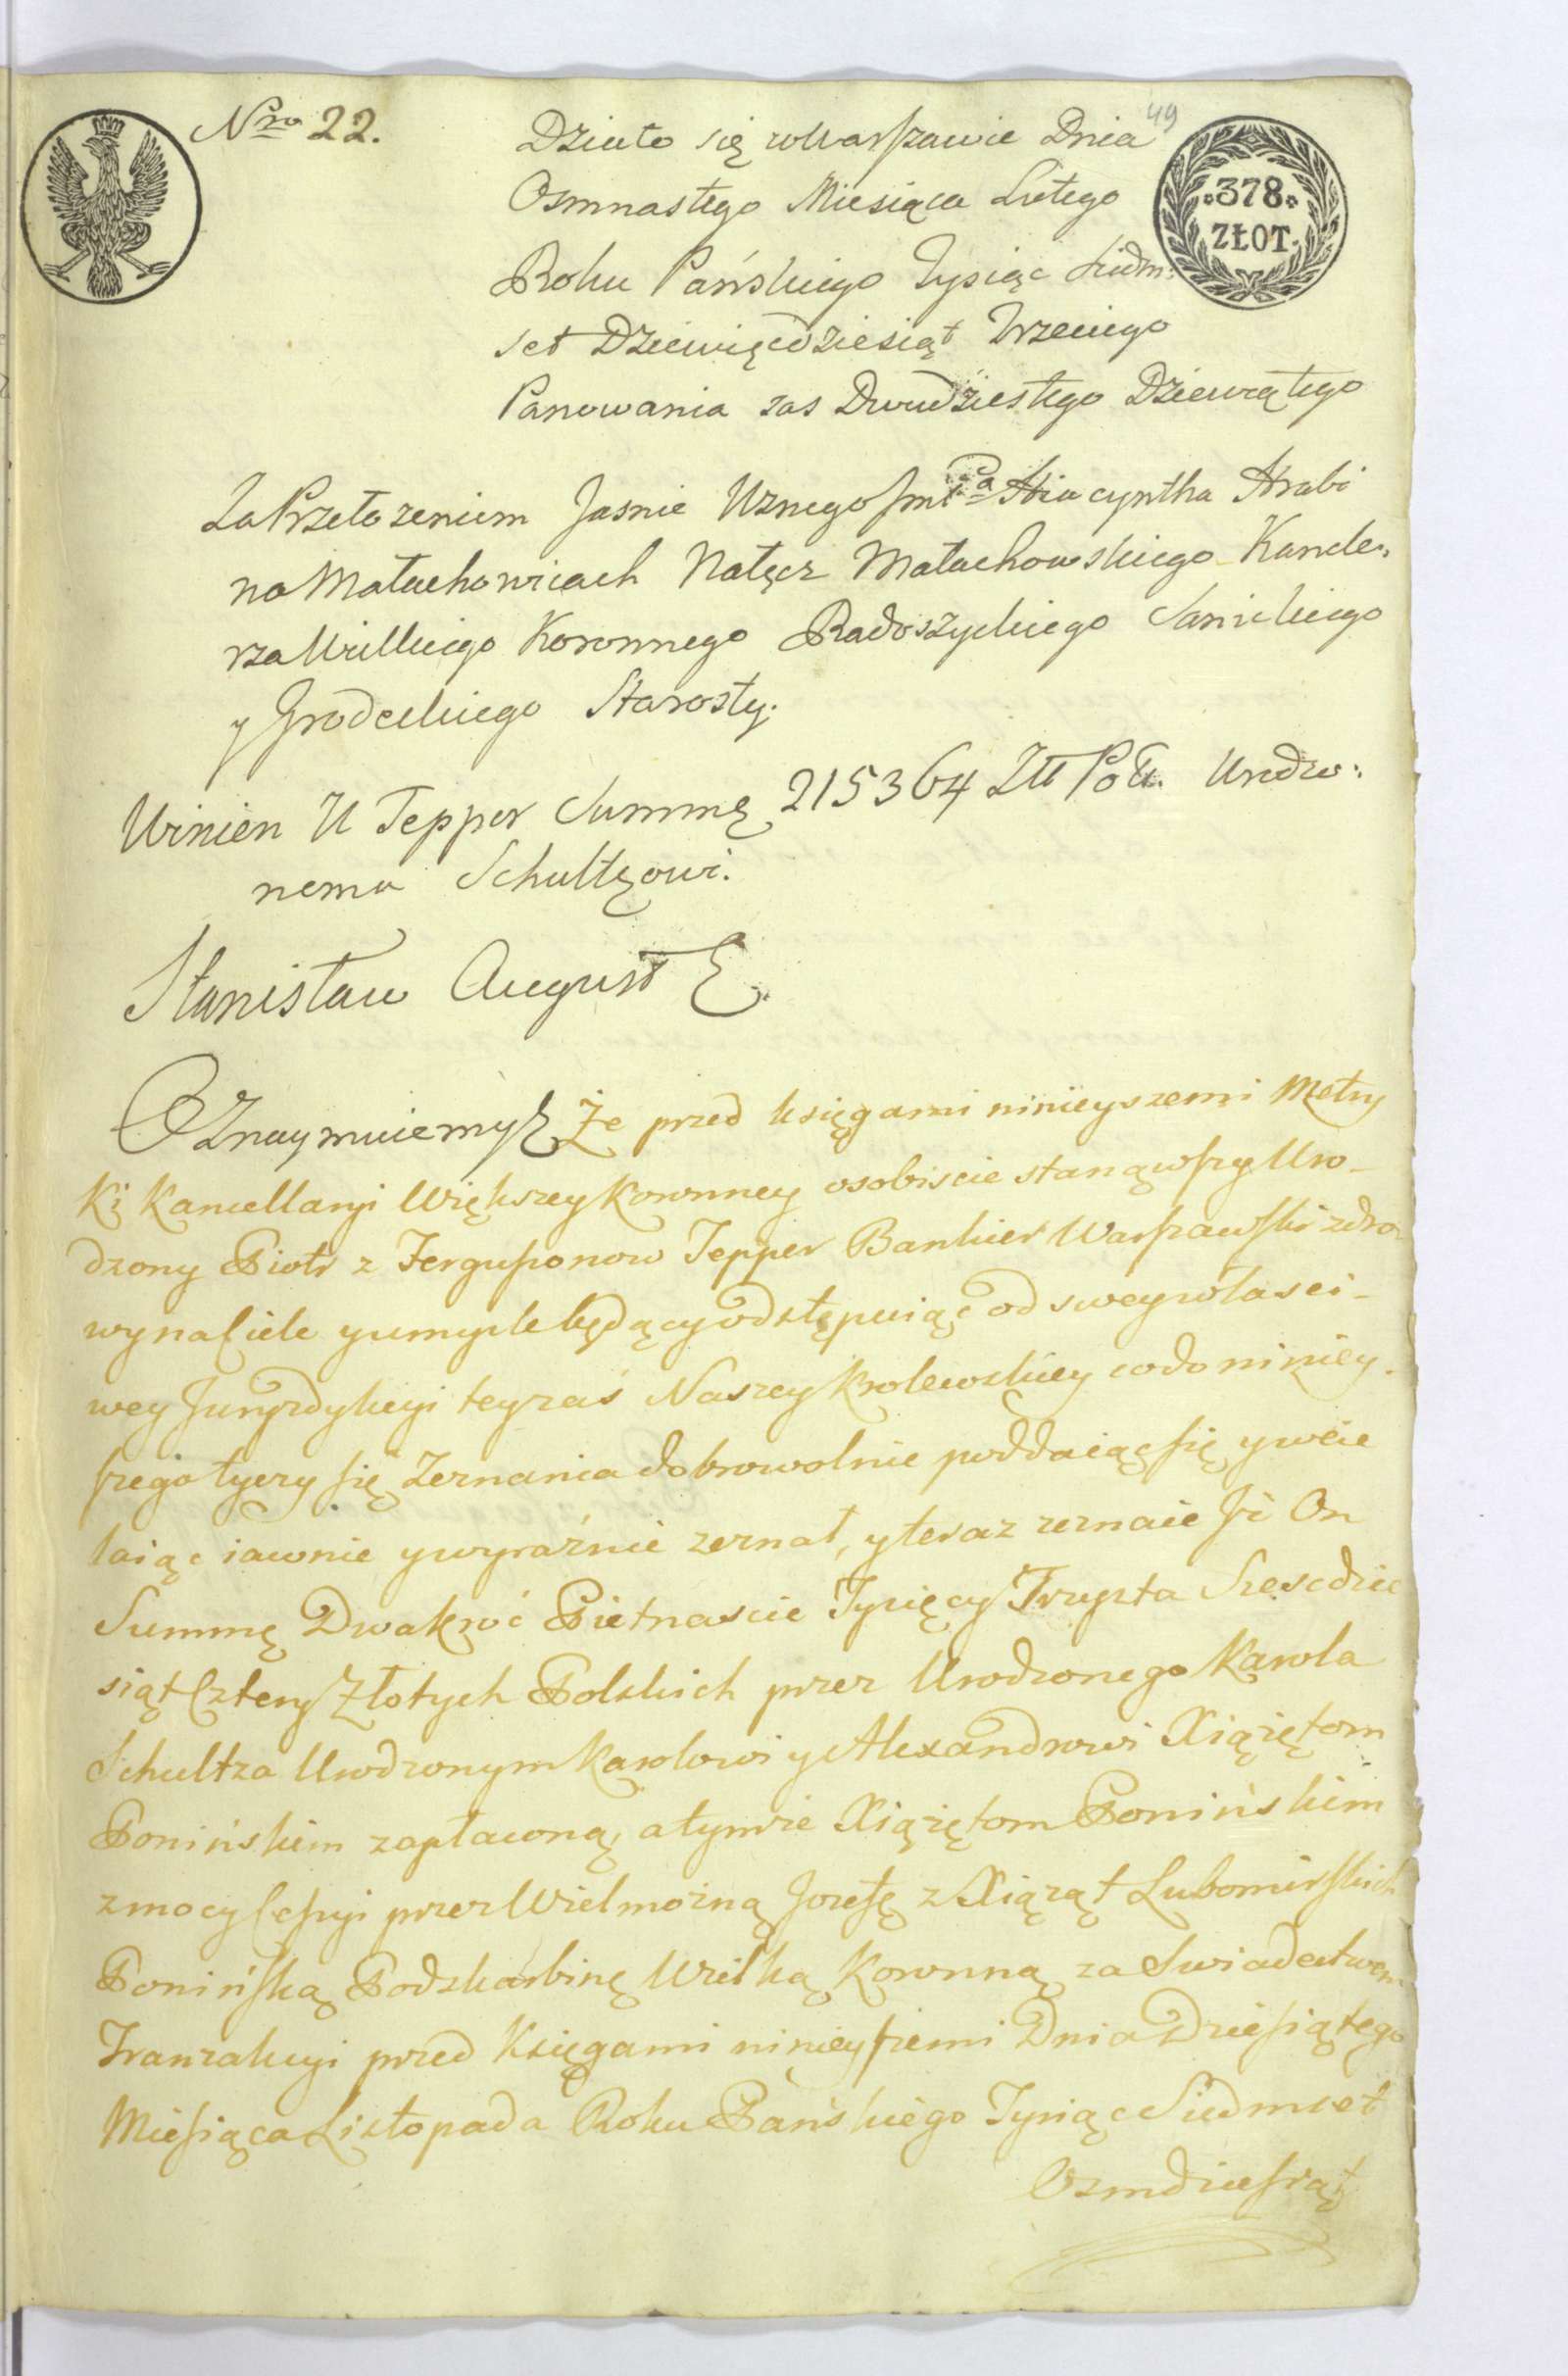 Nro 22.
49
Działo się w Warszawie Dnia
Osmnastego Miesiąca Lutego
Roku Pańskiego Tysiąc Siedm:
set Dziewięcdziesiąt Trzeciego
Panowania zas Dwudziestego Dziewiątego
378
ZŁOT.
Za Przełozeniem Jasnie Wznego Jmci Pa Hiacyntha Hrabi
na Małachowicach Nałęcz Małachowskiego Kancle:
rza Wielkiego Koronnego Radoszyckiego Sanickiego
y Grodeckiego Starosty.
Winien U Tepper Summę 215364 Złł Poll. Urodzo:
nemu Schultzowi.
Stanisław August &
Oznaymuiemy & Że przed księgami ninieyszemi Metry
ki Kancellaryi Większey Koronney osobiscie stanąwszy Uro-
dzony Piotr z Fergussonow Tepper Bankier Warszawski zdro
wy na Ciele y umysle będący odstępuiąc od swey własci-
wey Juryzdykcyi tey zaś Naszey Krolewskiey co do niniey-
szego tyczy się Zeznania dobrowolnie poddaiąc się y wcie
laiąc iawnie y wyraźnie zeznał, y teraz zeznaie Jż On
Summę Dwakroć Pietnascie Tysięcy Trzysta Szescdzie
siąt Cztery Złotych Polskich przez Urodzonego Karola
Schultza Urodzonym Karolowi y Alexandrowi Xiążętom
Ponińskim zapłaconą, a tymże Xiążętom Ponińskim
z mocy Cessyi przez Wielmożną Jozefę z Xiążąt Lubomirskich
Ponińską Podskarbinę Wielką Koronną za Swiadectwem
Tranzakcyi przed Księgami ninieyszemi Dnia Dziesiątego
Miesiąca Listopada Roku Pańskiego Tysiąc Siedmset
Osmdziesiąt